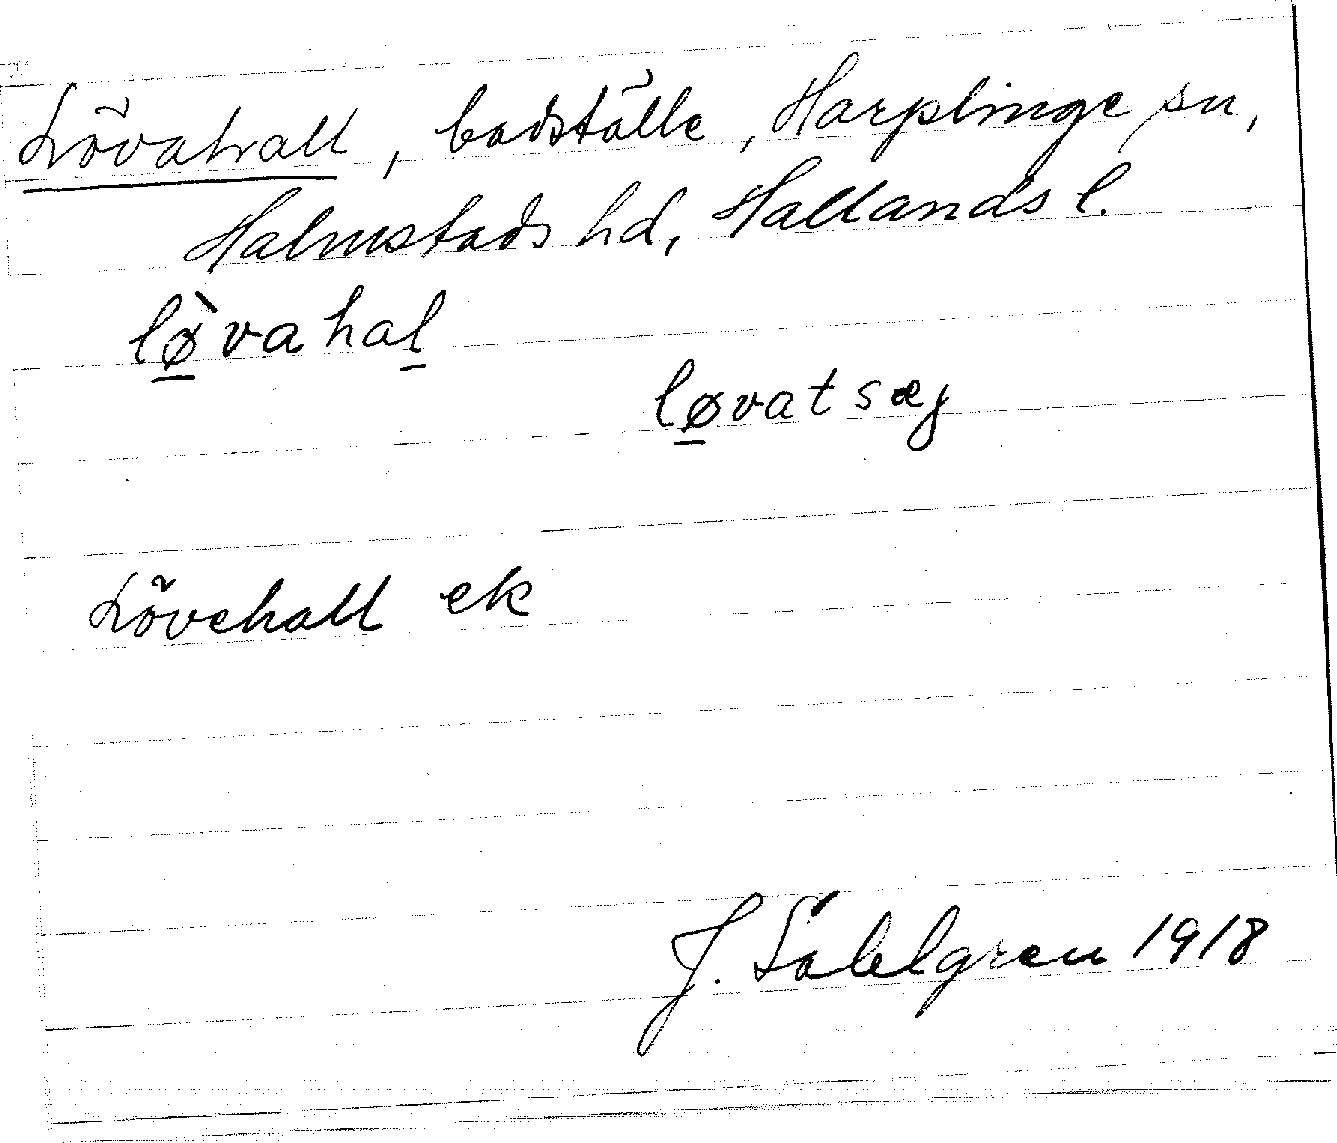 Lövahall, badställe, Harplinge sn,
Halmstads hd, Hallands l.
lø̲̀vahal̲
lø̲vatsæj
Lövehall ek
J. Sahlgren 1918